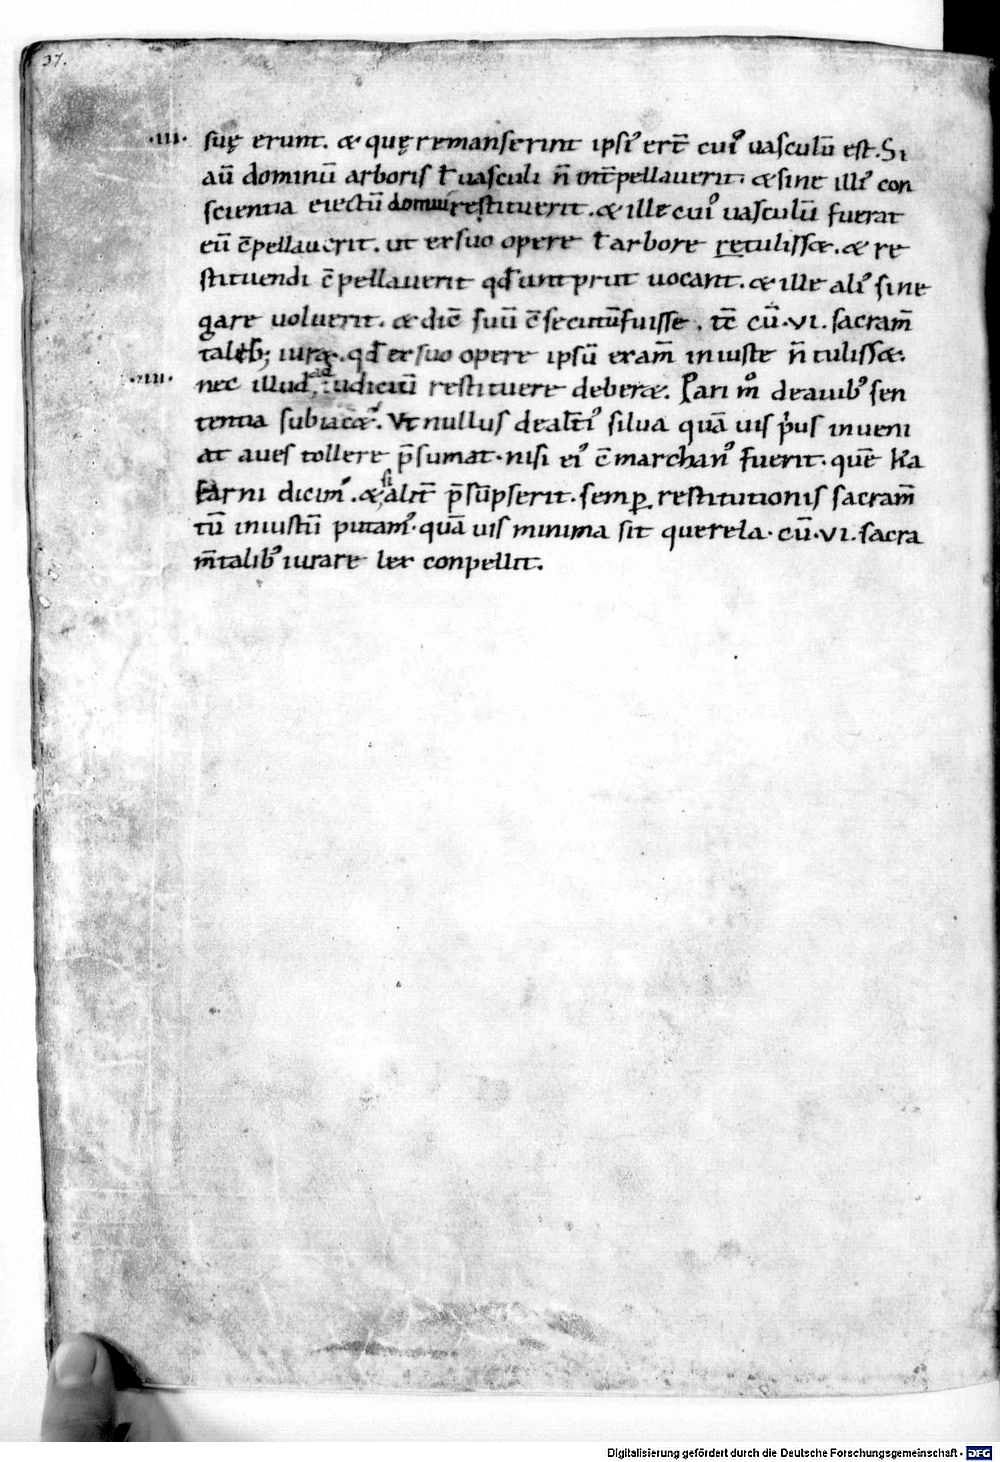 37.
.III. suę erunt. & quę remanserint ipsi' ert̄ cui' uasculū est. Si
aū dominū arboris ł uasculi n̄ int̄pellauerit. & sine illi' con
scientia eiectū domui restituerit. & ille cui' uasculū fuerat
eū c̄pellauerit. ut ex suo opere ł arbore retuliss&. & re
stituendi c̄pellauerit qđ untprut uocant. & ille ali' sine
gare uoluerit. & dic̄ suū c̄secutū fuisse. tc̄ cū .VI. sacram̄
talib; iur&. qđ ex suo opere ipsū exam̄ iniuste n̄ tuliss&.
.IIII. nec illud ad iudiciū restituere deber&. Pari m̊ de auib' sen
tentia subiac&. Ut nullus de alt̄i' silua quā uis p̍us inueni
at aues tollere p̄sumat. nisi ei' c̄marchan' fuerit. quē ka
farni dicim'. & si alit̄ p̄sūpserit. semp̱ restitutionis sacram̄
tū iniustū putam'. quā uis minima sit querela. cū .VI. sacra
m̄talib' iurare lex conpellit.
Digitalisierung gefördert durch die Deutsche Forschungsgemeinschaft - DFG